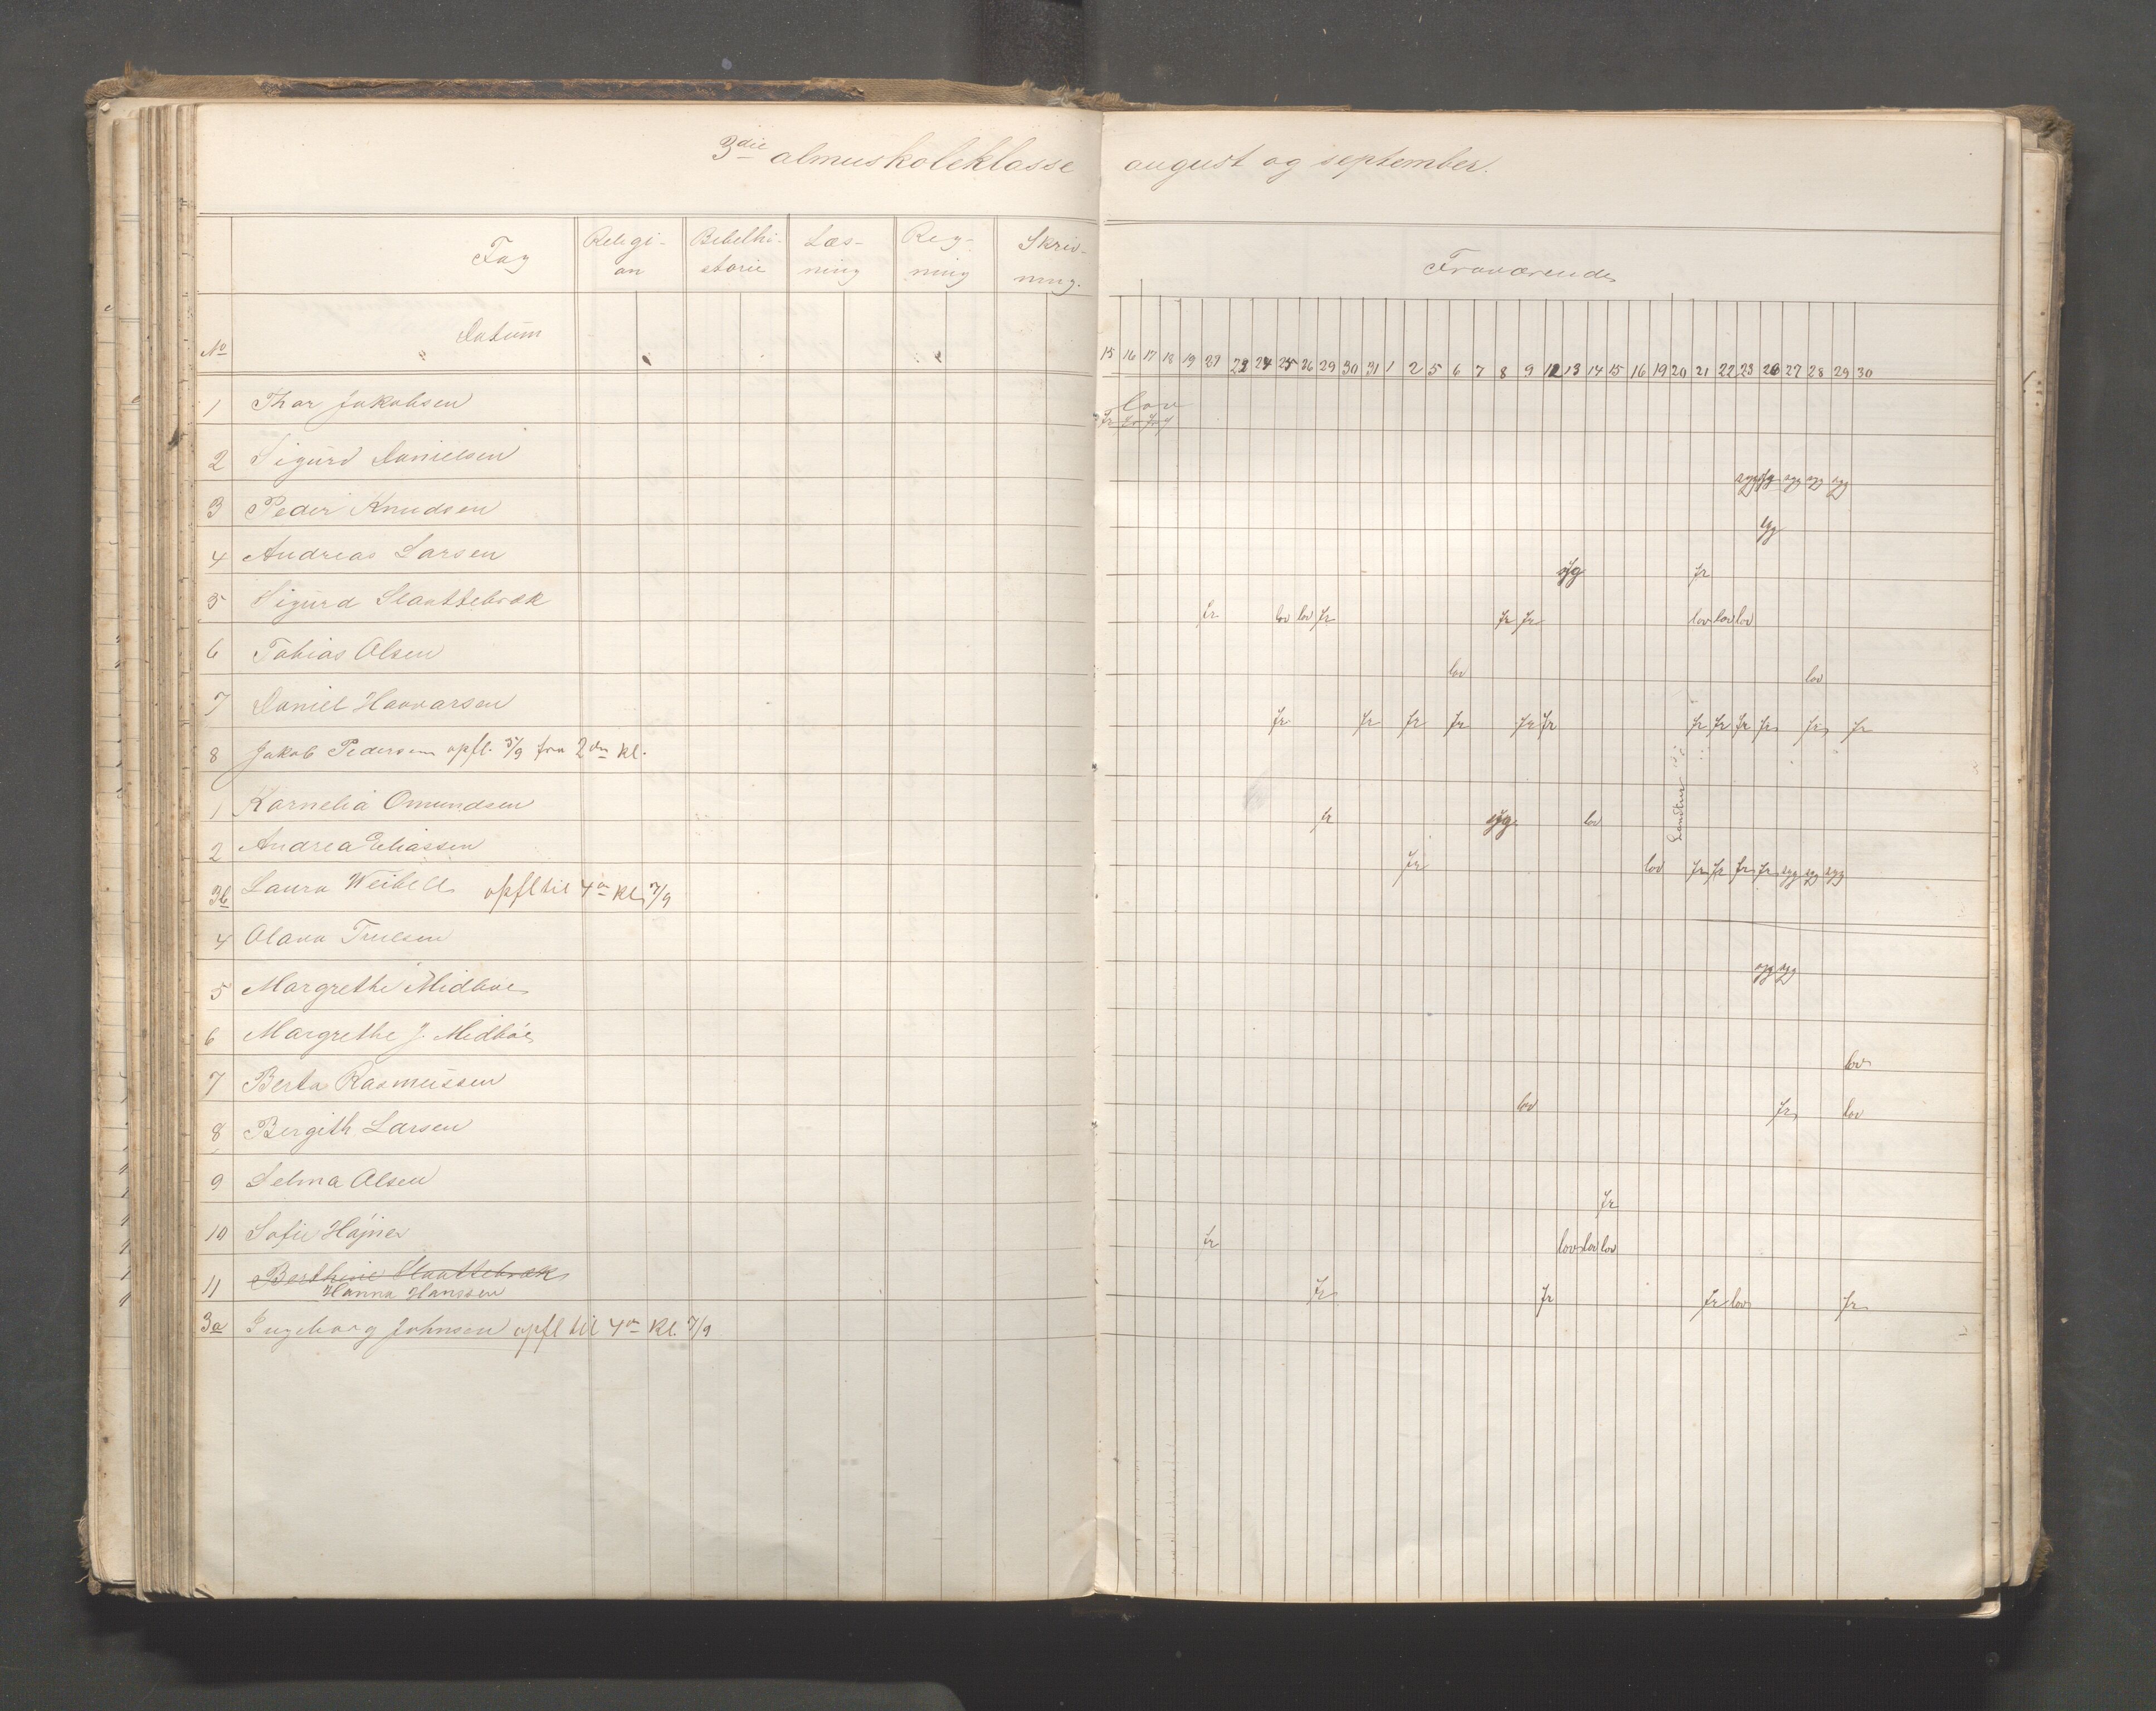 3die almueskoleklasse august og september.
Fag Religi- Bibelhi- Læs- Reg- Skriv-
on storie ning ning ning.
Fraværende
No Datum
15 16 17 18 19 29 23 24 25 26 29 30 31 1 2 5 6 7 8 9 12 13 14 15 16 19 20 21 22 23 26 27 28 29 30
1 Thor Jakobsen lov
fr fr
2 Sigurd Danielsen syg syg syg syg syg
3 Peder Knudsen syg
4 Andreas Larsen syg fr
5 Sigurd Slaattebræk fr lov lov fr fr fr lov lov lov
6 Tobias Olsen lov lov
7 Daniel Haavarsen fr fr fr fr fr fr fr fr fr fr fr fr
8 Jakob Pedersen opfl. 5/9 fra 2den kl.
Landtur
1 Kornelia Omundsen fr syg. lov
2 Andrea Eliassen fr lov fr fr fr fr syg syg syg
3b Laura Weibell opfl til 4de kl 7/9
4 Olava Trulsen syg syg
5 Margrethe Midbøe
6 Margrethe J. Midbøe lov
7 Berta Rasmussen lov fr lov
8 Bergith Larsen
9 Selma Olsen fr
10 Sofie Højner fr lov lov lov
11 Berthine Slaattebræk
Hanna Hanssen fr fr fr lov fr
3a Ingeborg Johnsen opfl til 4de kl. 7/9